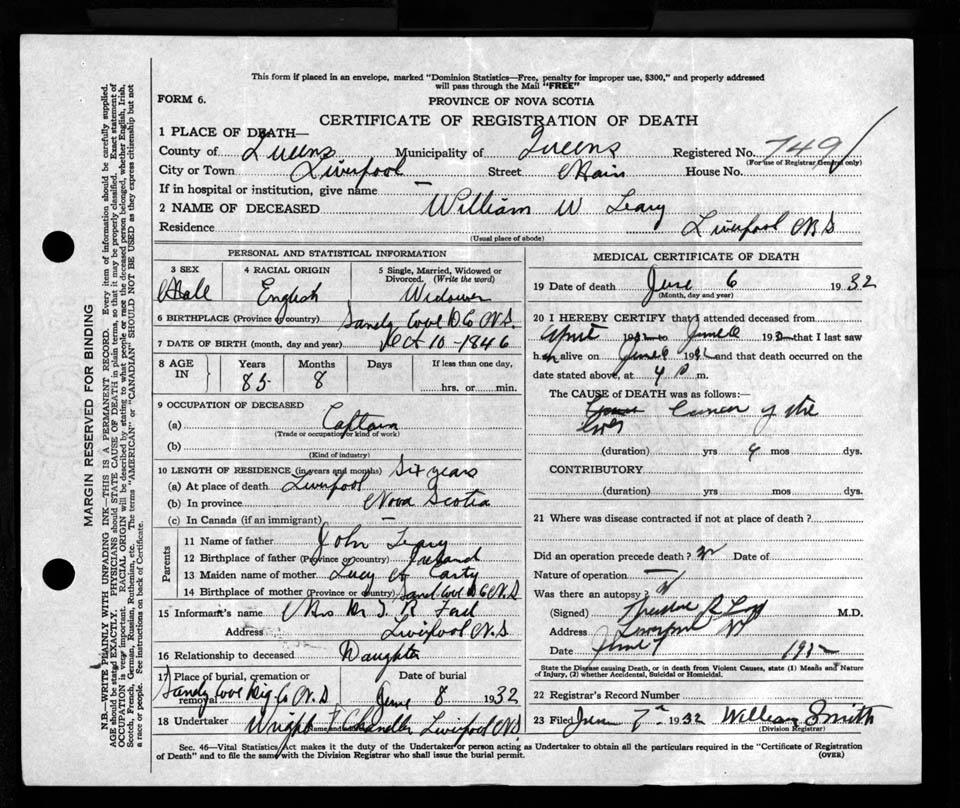 This form if placed in an envelope, marked "Dominion Statistics—Free, penalty for improper use, $300," and properly addressed
will pass through the Mail "FREE"
FORM 6.
PROVINCE OF NOVA SCOTIA
CERTIFICATE OF REGISTRATION OF DEATH
1 PLACE OF DEATH—
County of Queens Municipality of Queens Registered No. 749
(For use of Registrar General only)
City or Town Liverpool Street Main House No.
If in hospital or institution, give name —
2 NAME OF DECEASED William W Leary
Residence Liverpool N S
(Usual place of abode)
PERSONAL AND STATISTICAL INFORMATION
3 SEX 4 RACIAL ORIGIN 5 Single, Married, Widowed or Divorced. (Write the word)
Male English Widower
6 BIRTHPLACE (Province or country) Sandy Cove D Co N.S.
7 DATE OF BIRTH (month, day and year) Oct 10 - 1846
8 AGE IN Years Months Days If less than one day,
85 8 hrs. or min.
9 OCCUPATION OF DECEASED
(a) Captain
(Trade or occupation or kind of work)
(b)
(Kind of industry)
10 LENGTH OF RESIDENCE (in years and months) Six years
(a) At place of death Liverpool
(b) In province Nova Scotia
(c) In Canada (if an immigrant) —
Parents
11 Name of father John Leary
12 Birthplace of father (Province or country) Ireland
13 Maiden name of mother Lucy A Carty
14 Birthplace of mother (Province or country) Sand Cove D Co N.S
15 Informant's name Mrs Dr T. R Ford
Address Liverpool N.S
16 Relationship to deceased Daughter
17 Place of burial, cremation or removal Date of burial
Sandy Cove Dig Co N.S June 8 1932
18 Undertaker Wright & Chandler Liverpool N.S
Name and address
MEDICAL CERTIFICATE OF DEATH
19 Date of death June 6 1932
(Month, day and year)
20 I HEREBY CERTIFY that I attended deceased from
April 1932 to June 6 1932 that I last saw
h im alive on June 6 1932 and that death occurred on
date stated above, at 4 P m.
The CAUSE of DEATH was as follows:—
Cancer of the
liver
(duration) yrs 4 mos dys.
CONTRIBUTORY
(duration) yrs mos dys.
21 Where was disease contracted if not at place of death?
Did an operation precede death? Date of
Nature of operation —
Was there an autopsy?
(Signed) Theodore R Ford M.D.
Address Liverpool NS
Date June 7 1932
State the Disease causing Death, or in death from Violent Causes, state (1) Means and Nature
of Injury, (2) whether Accidental, Suicidal or Homicidal.
22 Registrar's Record Number
23 Filed June 7th 1932 William Smith
(Division Registrar)
Sec. 46—Vital Statistics Act makes it the duty of the Undertaker or person acting as Undertaker to obtain all the particulars required in the "Certificate of Registration
of Death" and to file the same with the Division Registrar who shall issue the burial permit.
(OVER)
MARGIN RESERVED FOR BINDING
N.B.—WRITE PLAINLY WITH UNFADING INK—THIS IS A PERMANENT RECORD. Every item of information should be carefully supplied.
AGE should be stated EXACTLY. PHYSICIANS should STATE CAUSE OF DEATH in plain terms, so that it may be properly classified. Exact statement of
OCCUPATION is very important. RACIAL ORIGIN will be described by stating to what people or race the deceased person belonged, whether English, Irish,
Scotch, French, German, Russian, Ruthenian, etc. The terms "AMERICAN" or "CANADIAN" SHOULD NOT BE USED as they express citizenship but not
a race or people. See instructions on back of Certificate.